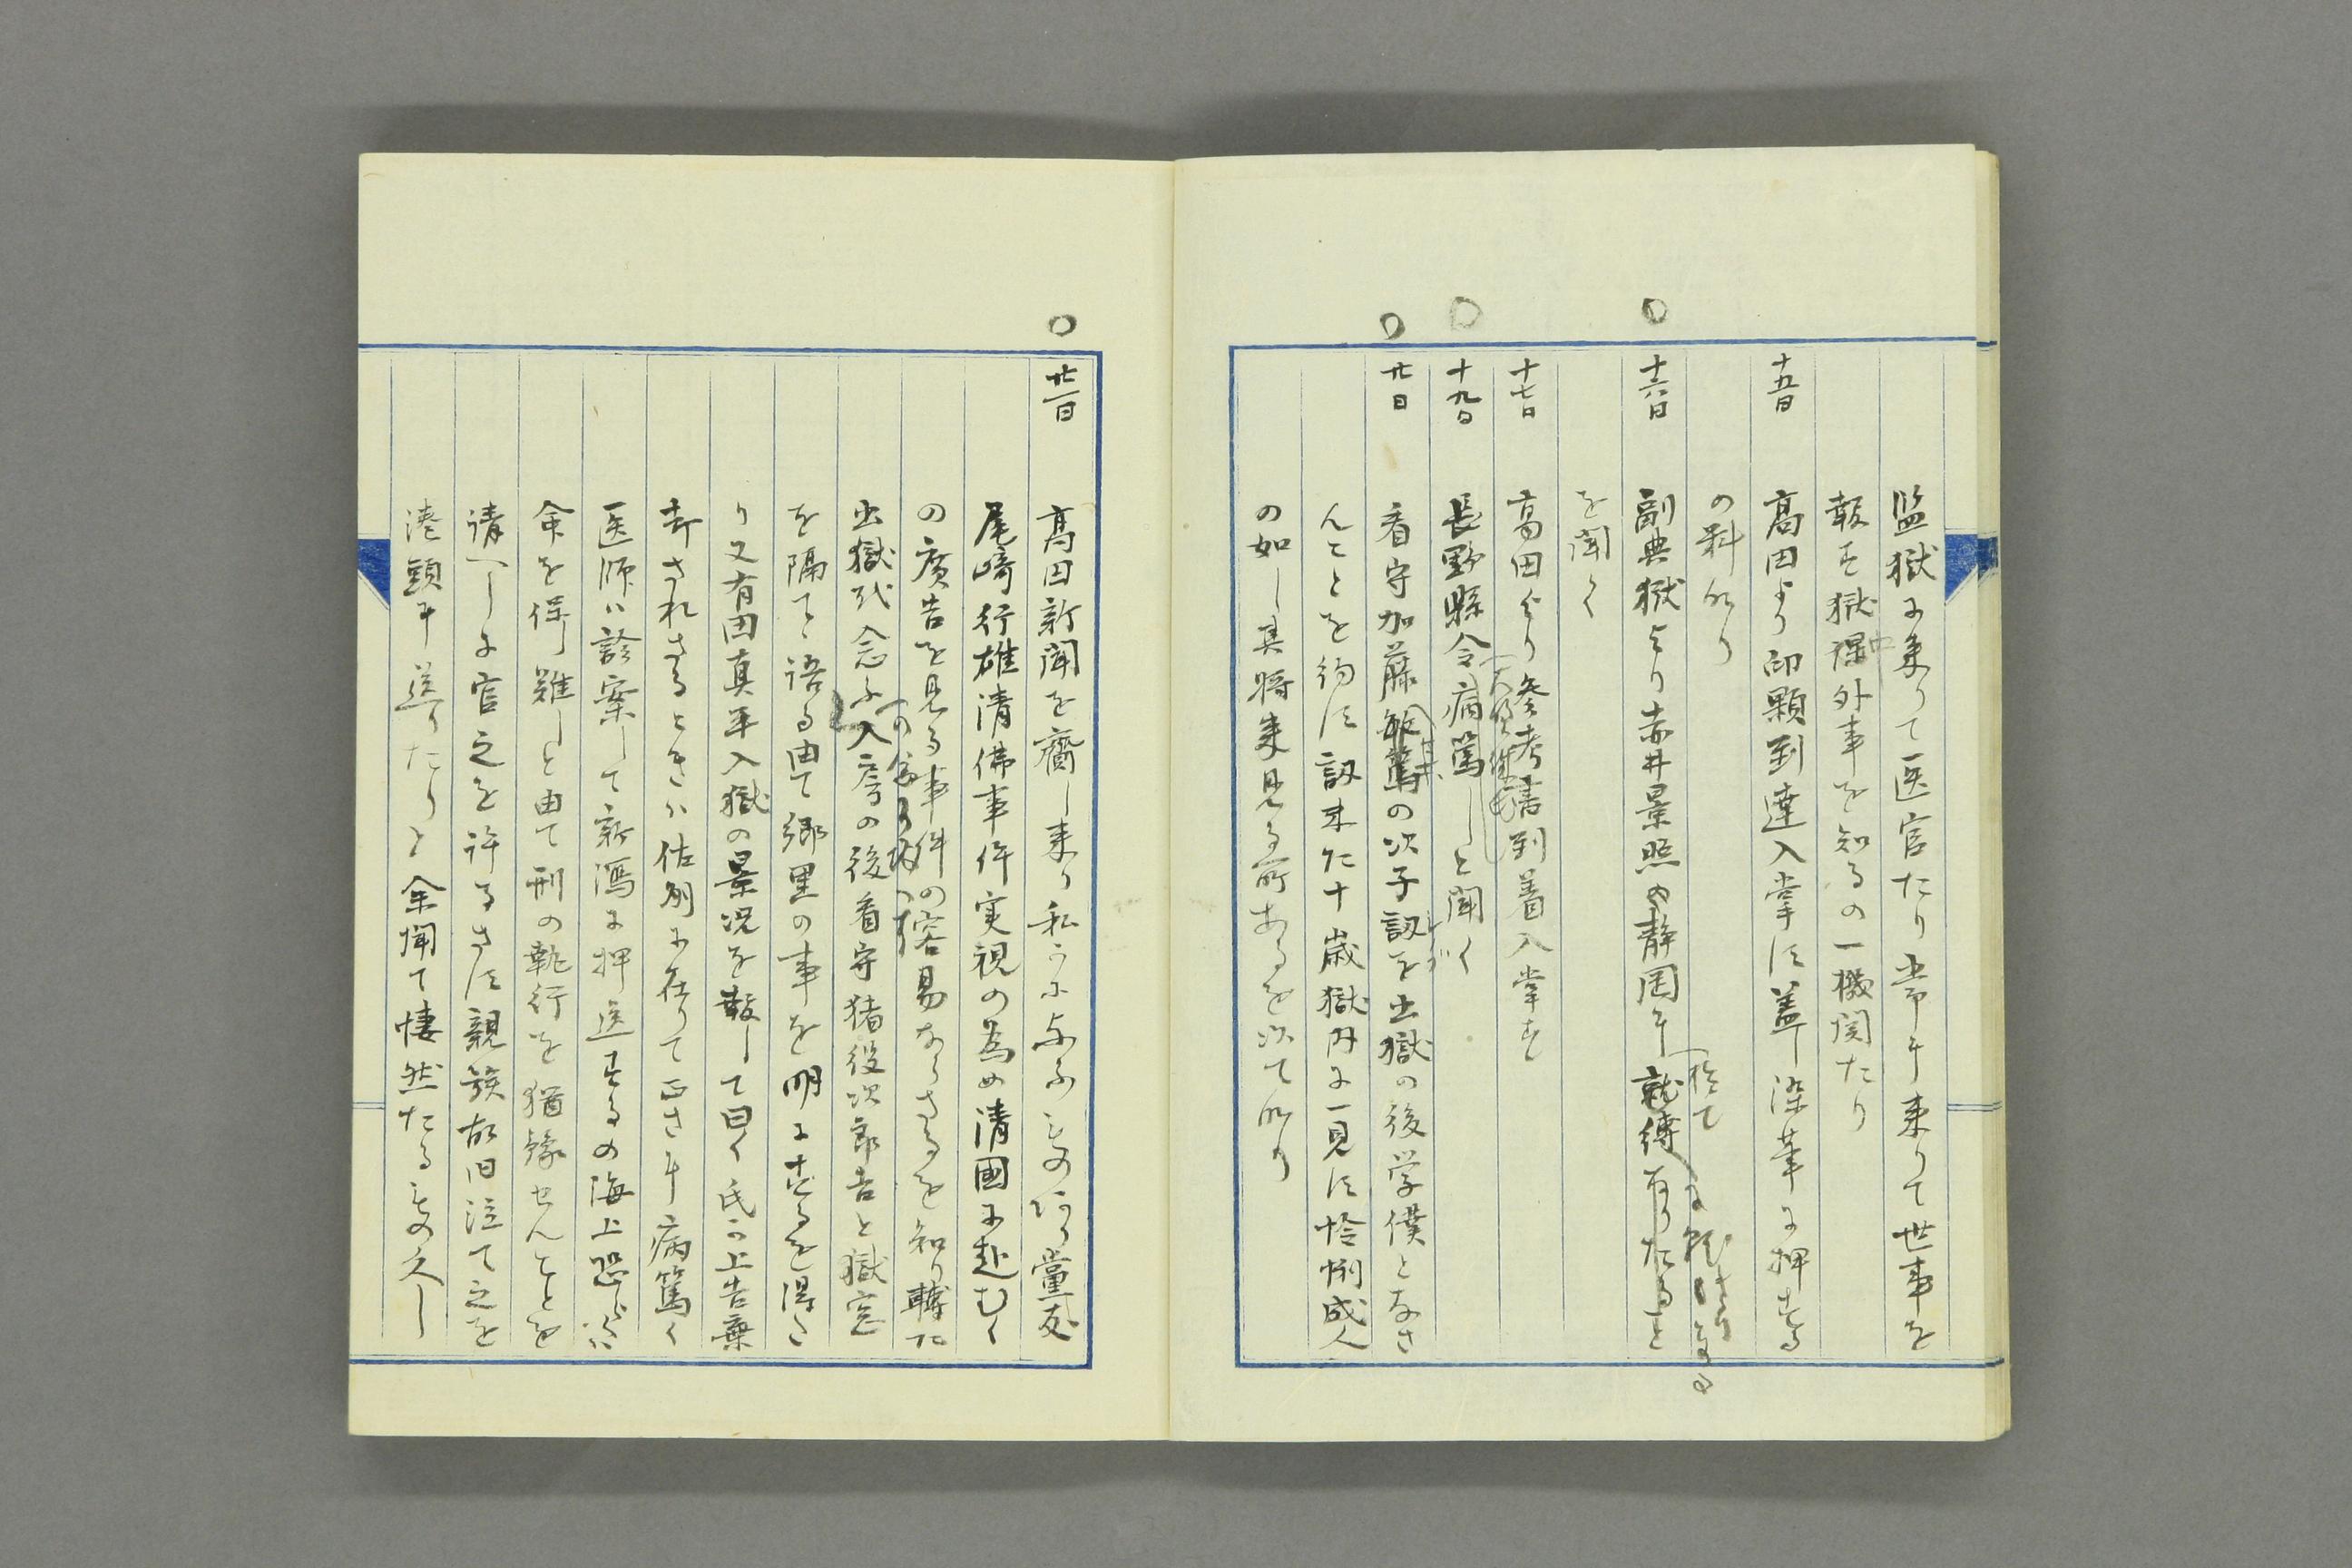 監獄に来りて医官たり常に来りて世事を
報す獄裡外事を知るの一機関たり
十五日 高田より印顆到達入掌す蓋し染筆に押する
の料なり
十六日 副典獄より赤井景照の静岡に就縛有りたるを
を聞く
十七日 高田より参考書到着入掌す
十九日 長野縣令病篤しと聞く
廿日 看守加藤敏篤の次子訒を出獄の後学僕となさ
んことを約す訒未た十歳獄内に一見す怜悧成人
の如し其将来見る所あるを以てなり
廿一日 高田新聞を齎し来り私かに与ふるもの何ろ黨友
尾崎行雄清佛事件実視の為め清國に赴むく
の廣告を見る事件の容易ならさるを知り轉た
出獄の念ふ入房の後看守猪役次郎吉と獄窓
を隔て語る由て郷里の事を明に するを得た
り又有田真平入獄の景况を報して曰く氏か上告棄
却されさるときは佐州に在りて正さに病篤く
医師は診案して新潟に押送するの海上恐らくは
命を保ち難しと由て刑の執行を猶豫せんことを
請へしに官之を許るさす親族故旧泣て之を
湊頭に送りたりと余聞て悽然たるもの久し